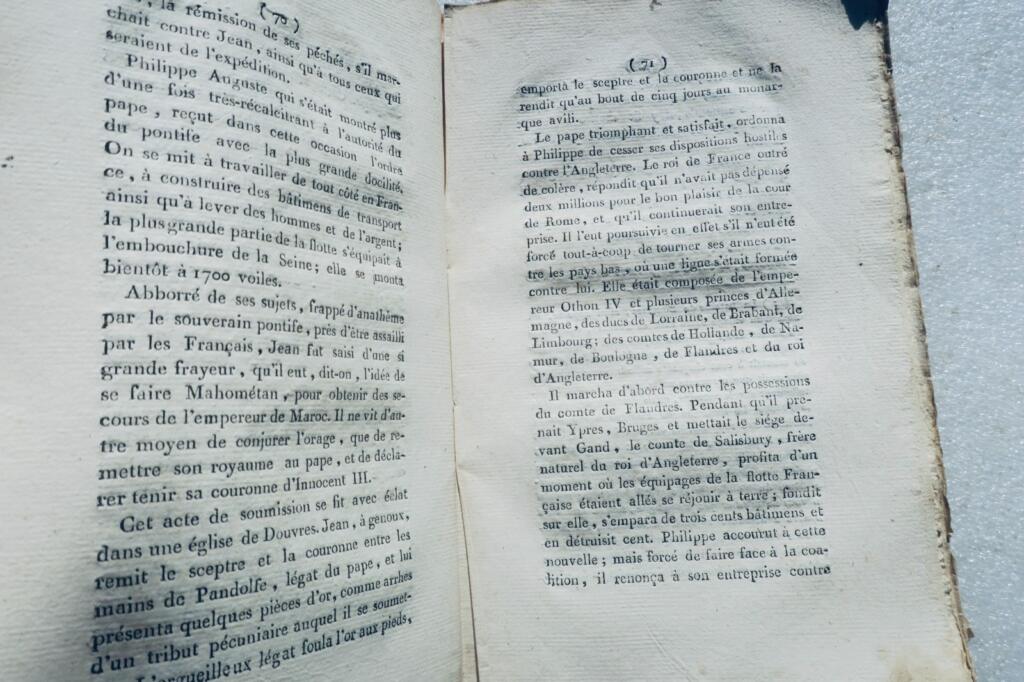 ( 70 )
, la rémission de ses péchés, s'il mar-
chait contre Jean, ainsi qu'à tous ceux qui
seraient de l'expédition.
Philippe Auguste qui s'était montré plus
d'une fois très-récalcitrant à l'autorité du
pape, reçut dans cette occasion l'ordre
du pontife avec la plus grande docilité.
On se mit à travailler de tout côté en Fran-
ce, à construire des bâtimens de transport
ainsi qu'à lever des hommes et de l'argent;
la plus grande partie de la flotte s'équipait à
l'embouchure de la Seine; elle se monta
bientôt à 1700 voiles.
Abborré de ses sujets, frappé d'anathème
par le souverain pontife, près d'être assailli
par les Français, Jean fut saisi d'une si
grande frayeur, qu'il eut, dit-on, l'idée de
se faire Mahométan, pour obtenir des se-
cours de l'empereur de Maroc. Il ne vit d'au-
tre moyen de conjurer l'orage, que de re-
mettre son royaume au pape, et de décla-
rer tenir sa couronne d'Innocent III.
Cet acte de soumission se fit avec éclat
dans une église de Douvres. Jean, à genoux,
remit le sceptre et la couronne entre les
mains de Pandolfe, légat du pape, et lui
présenta quelques pièces d'or, comme arrhes
d'un tribut pécuniaire auquel il se soumet-
L'orgueilleux légat foula l'or aux pieds,
( 71 )
emporta le sceptre et la couronne et ne la
rendit qu'au bout de cinq jours au monar-
que avili.
Le pape triomphant et satisfait, ordonna
à Philippe de cesser ses dispositions hostiles
contre l'Angleterre. Le roi de France outré
de colère, répondit qu'il n'avait pas dépensé
deux millions pour le bon plaisir de la cour
de Rome, et qu'il continuerait son entre-
prise. Il l'eut poursuivie en effet s'il n'eut été
forcé tout-à-coup de tourner ses armes con-
tre les pays bas, où une ligue s'était formée
contre lui. Elle était composée de l'empe-
reur Othon IV et plusieurs princes d'Alle-
magne, des ducs de Lorraine, de Brabant, de
Limbourg; des comtes de Hollande, de Na-
mur, de Boulogne, de Flandres et du roi
d'Angleterre.
Il marcha d'abord contre les possessions
du comte de Flandres. Pendant qu'il pre-
nait Ypres, Bruges et mettait le siége de-
vant Gand, le comte de Salisbury, frère
naturel du roi d'Angleterre, profita d'un
moment où les équipages de la flotte Fran-
çaise étaient allés se réjouir à terre; fondit
sur elle, s'empara de trois cents bâtimens et
en détruisit cent. Philippe accourut à cette
nouvelle; mais forcé de faire face à la coa-
lition, il renonça à son entreprise contre